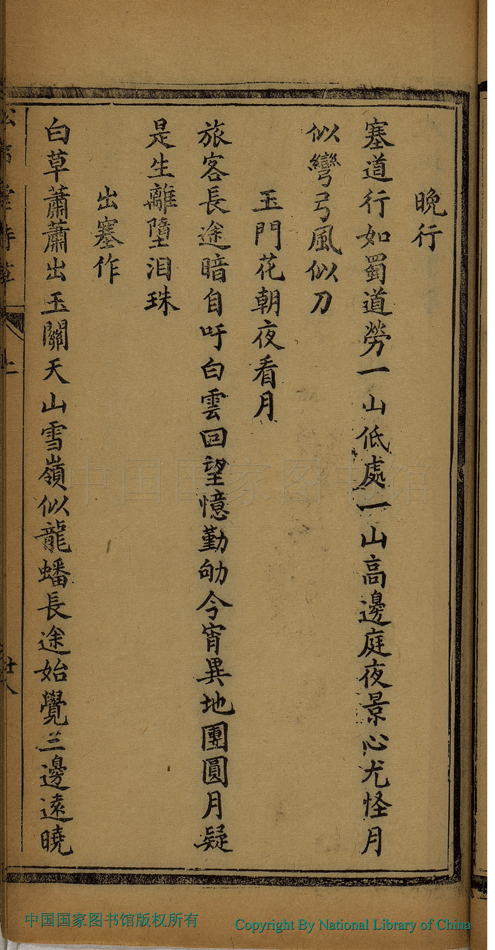 晚行
塞道行如蜀道勞一山低處一山高邊庭夜景心尤怪月
似彎弓風似刀
玉門花朝夜看月
旅客長途暗自吁白雲回望憶勤劬今宵異地團圓月疑
是生離墮泪珠
出塞作
白草蕭蕭出玉關天山雪嶺似龍蟠長途始覺三邊遠曉
上
廿八
中国国家图书馆
中国国家图书馆版权所有
Copyright By National Library of China